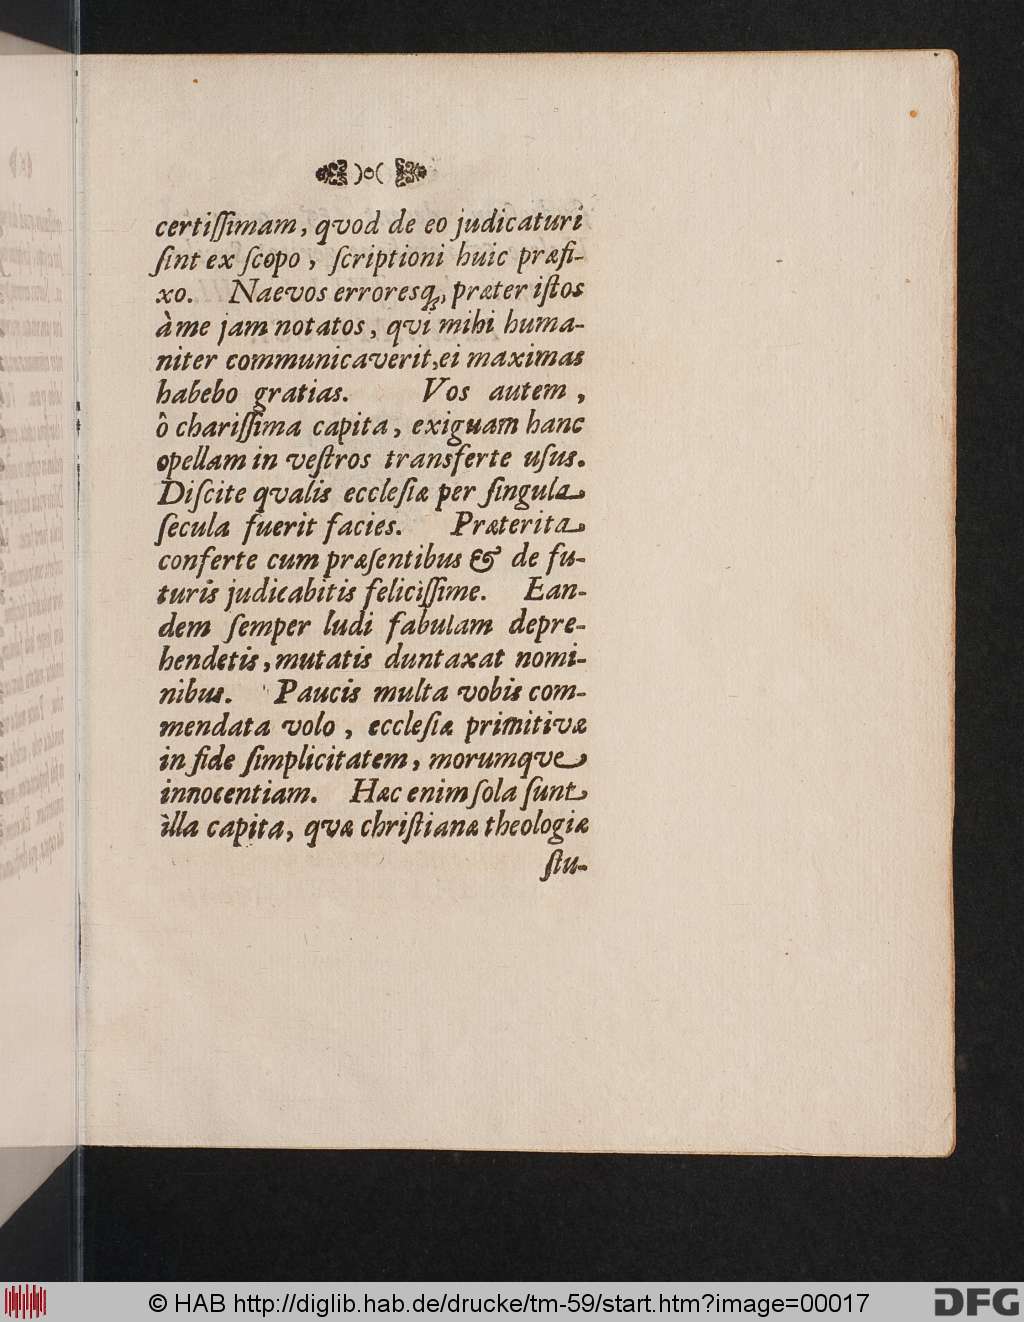 certiſſimam, qvod de eo judicaturi
ſint ex ſcopo, ſcriptioni huic præfi-
xo. Naevos erroresq;, præter iſtos
à me jam notatos, qvi mihi huma-
niter communicaverit, ei maximas
habebo gratias. Vos autem,
ô chariſſima capita, exiguam hanc
opellam in veſtros transferte uſus.
Diſcite qvalis eccleſiæ per ſingula
ſecula fuerit facies. Præterita
conferte cum præſentibus & de fu-
turis judicabitis feliciſſime. Ean-
dem ſemper ludi fabulam depre-
hendetis, mutatis duntaxat nomi-
nibus. Paucis multa vobis com-
mendata volo, eccleſiæ primitivæ
in fide ſimplicitatem, morumque
innocentiam. Hæc enim ſola ſunt
illa capita, qvæ chriſtianæ theologiæ
ſtu-
© HAB http://diglib.hab.de/drucke/tm-59/start.htm?image=00017
DFG